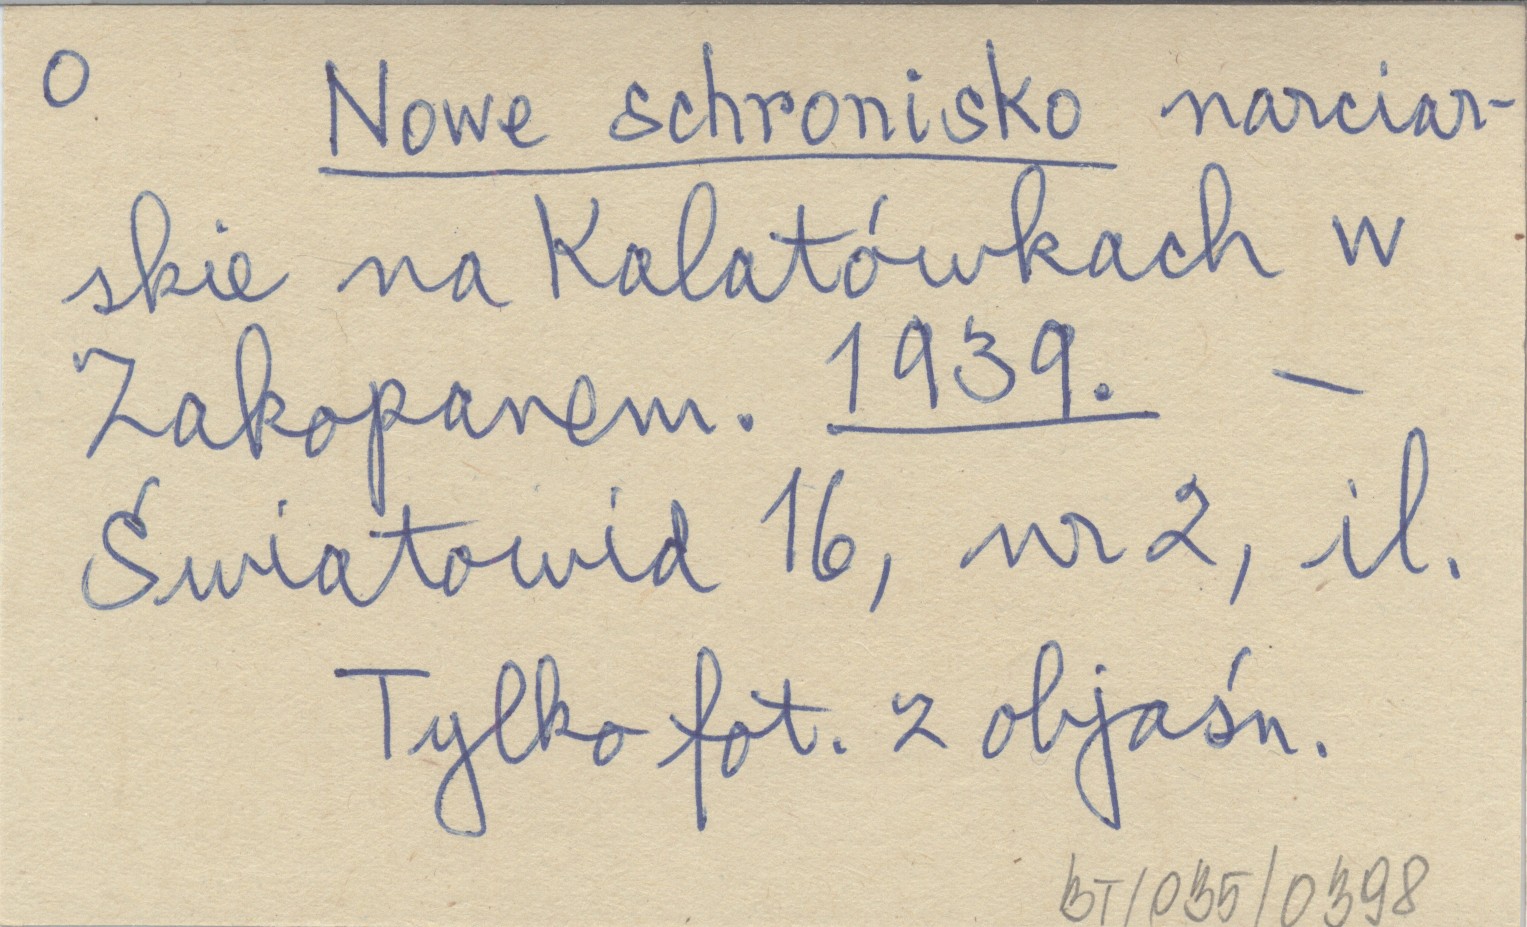 O Nowe schronisko narciar-
skie na Kalatówkach w
Zakopanem. 1939. –
Światowid 16, nr 2, il.
Tylko fot. z objaśn.
BT/035/0398